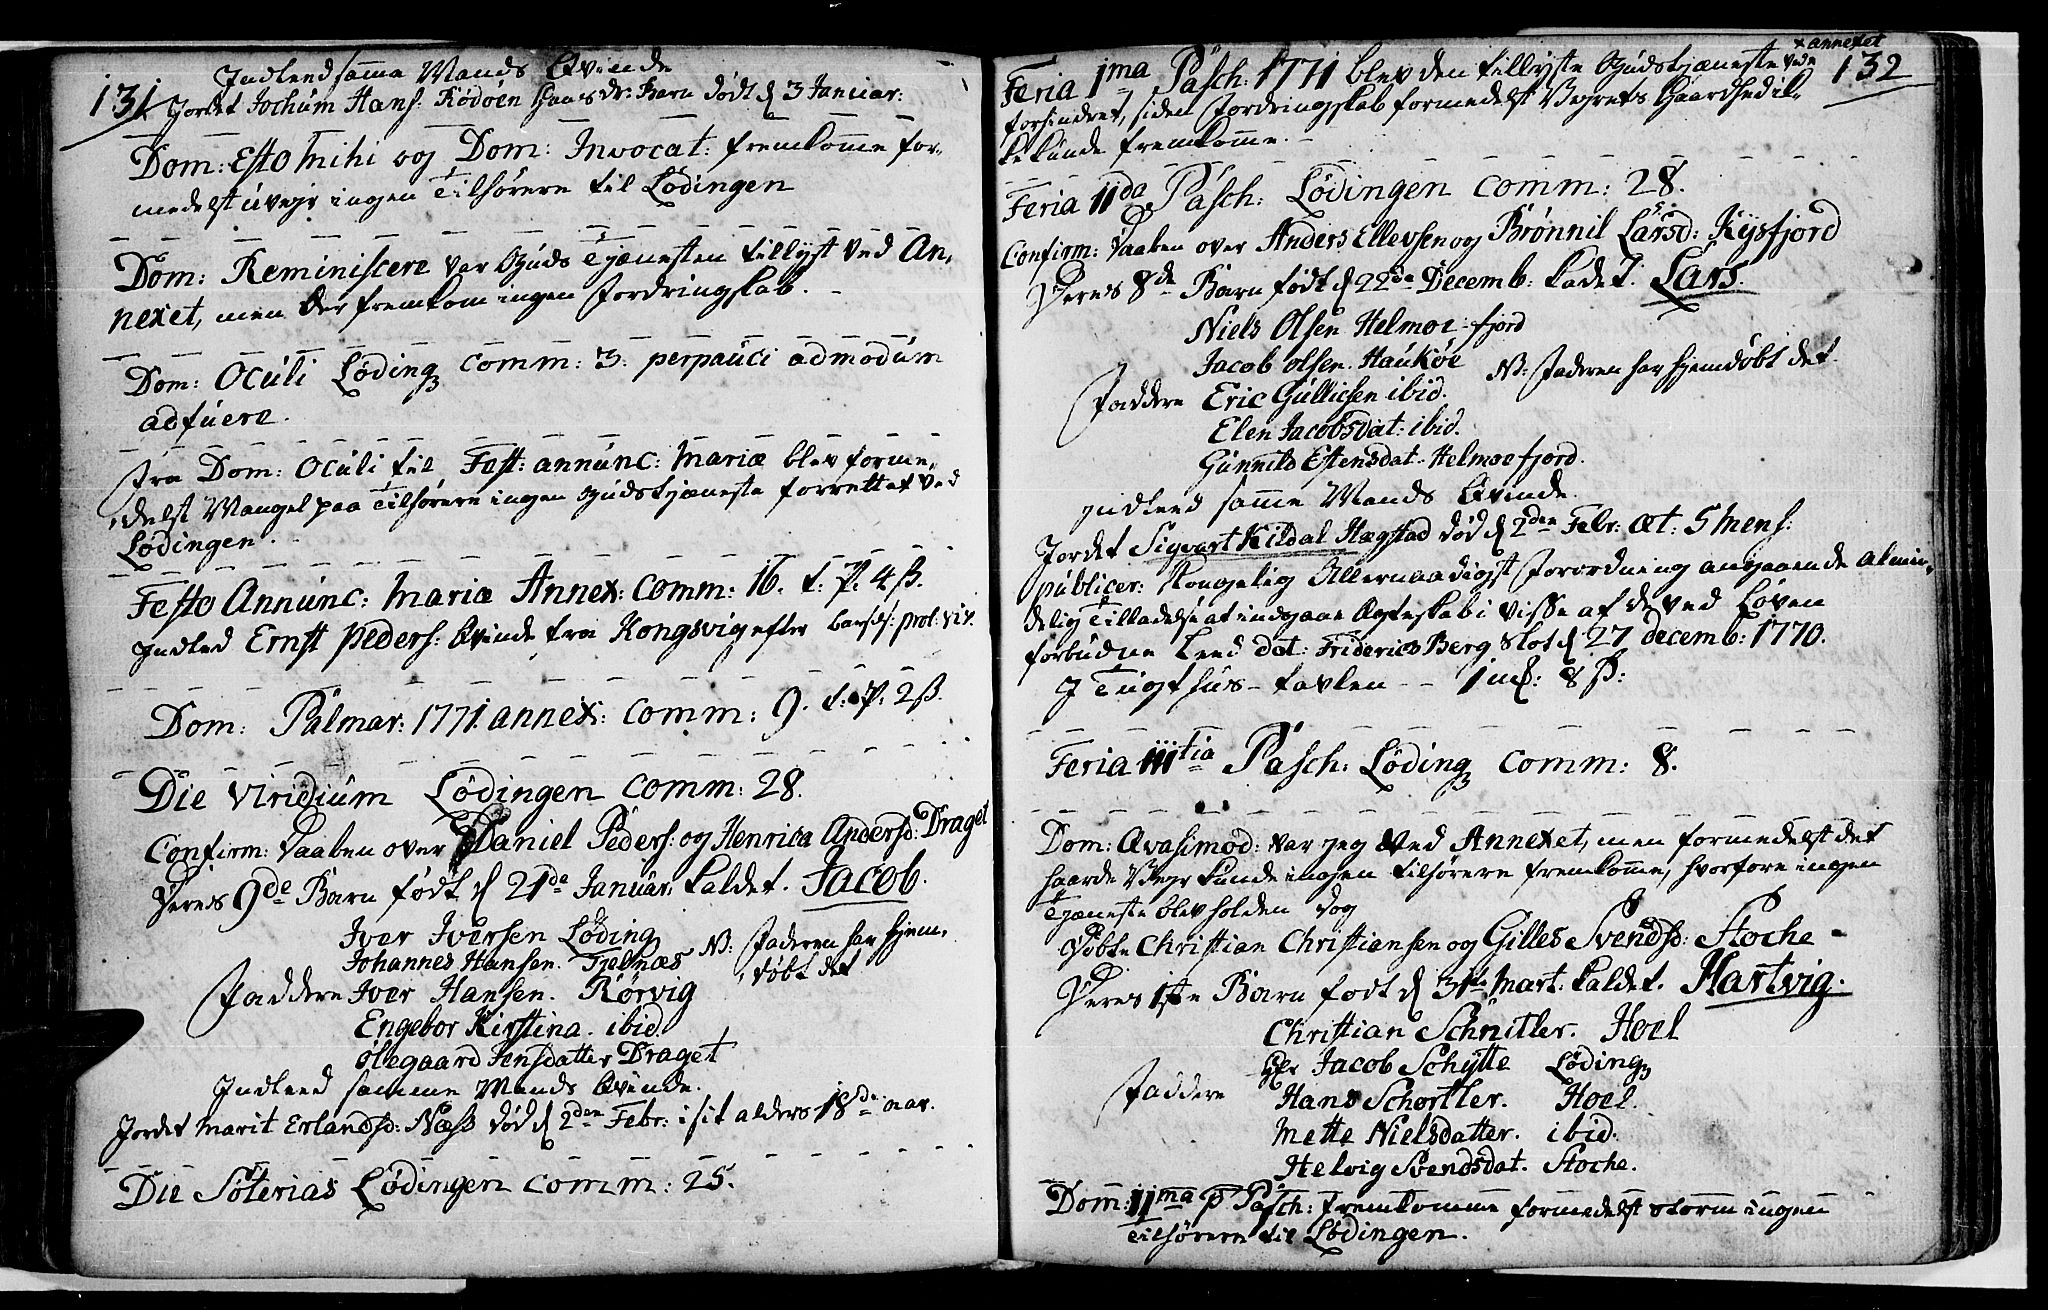 131
Indleed samme Mands Qvinde
Jordet Jochum Hans: Rødøen hans dr: Barn død d 3 Januar:
Dom: Esto mihi og Dom: Invocat: fremkomme for-
medelst uvejr ingen Tilhørere til Lødingen
Dom: Reminiscere var Guds Tjænesten tillyst ved An-
nexet, men der fremkom ingen Fordringskab.
Dom: Oculi Løding comm: 3. perpauci admodum
adfuere.
Fra Dom: Oculi til Fest: annunc: Mariæ blev forme-
delst Mangel paa Tilhørere ingen Gudstjæneste forrettet ved
Lødingen.
Festo Annunc: Mariæ Annex: comm: 16. t. P. 4 ß.
Indled Ernst Peders: Qvinde fra Kongsvig efter prol:
Dom: Palmar: 1771. annex: comm: 9. t. P: 2 ß.
Die Viridium Lødingen comm: 28.
Confirm: Daaben over Daniel Peders: og Henrica Andersd: Draget
Deres 9de Barn født d 21de Januar. kaldet. Jacob.
Iver Iversen Løding
Johannes Hansen. Tjelnæs
NB: Faderen har hjem-
døbt det
Faddere Iver Hansen. Rørvig
Engebor Kirstina. ibid
Olegaard Jensdatter Draget
Indleed samme Mands Qvinde.
Jordet Marit Erlandsd: Næss død d 2den Febr: i sit alders 18de aar.
Die Soterias Lødingen comm: 25.
132
+ annexet
Feria 1ma Pasch: 1771 blev den tillyste Gudstjæneste ved
forhindret, siden Fordringskab formedelst Vejrets Haardhed ik-
ke kunde fremkomme.
Feria IIda Pasch: Lødingen comm: 28.
Confirm: Daaben over Anders Ellevsen og Brønnil Larsd: Kysfjord
Deres 8de Barn født d 22de Decemb: kadet: Lars.
Niels Olsen Helmoe-fjord
Jacob Olsen. Haukøe
NB: Faderen har hjemdøbt det
Faddere Eric Gullichsen ibid.
Elen Jacobsdat: ibid.
Gunnild Estensdat. Helmoefjord.
Indleed samme Mands Qvinde.
Jordet Sigvart Kildal Hægstad død d 2den Febr: æt: 5 Mens:
publicer: Kongelig Allernaadigst Forordning angaaende almin-
delig Tilladelse at indgaae Ægteskab i visse af de ved Loven
forbudne Leed dat: Friderics Berg Slot d 27 decemb: 1770.
I Tugthus-tavlen - - 1 mk: 8 ß:
Feria IIItia Pasch: Løding comm: 8.
Dom: Qvasimod: var jeg ved Annexet, men formedelst det
haarde Vejr kunde ingen tilhørere fremkomme, hvorfore ingen
Tjæneste blev holden dog
Døbte Christian Christiansen og Gilles Svendsd: Stoche
Deres 1ste Barn født d 31te Mart: kaldet. Hartvig.
Christian Schnitler. Hoel
Hr Jacob Schytte Løding
Faddere Hans Schørtler. Hoel.
Mette Nielsdatter. ibid.
Helvig Svendsdat. Stoche.
Dom: IIma p Pasch: fremkomme formedelst storm ingen
tilhørere til Lødingen.